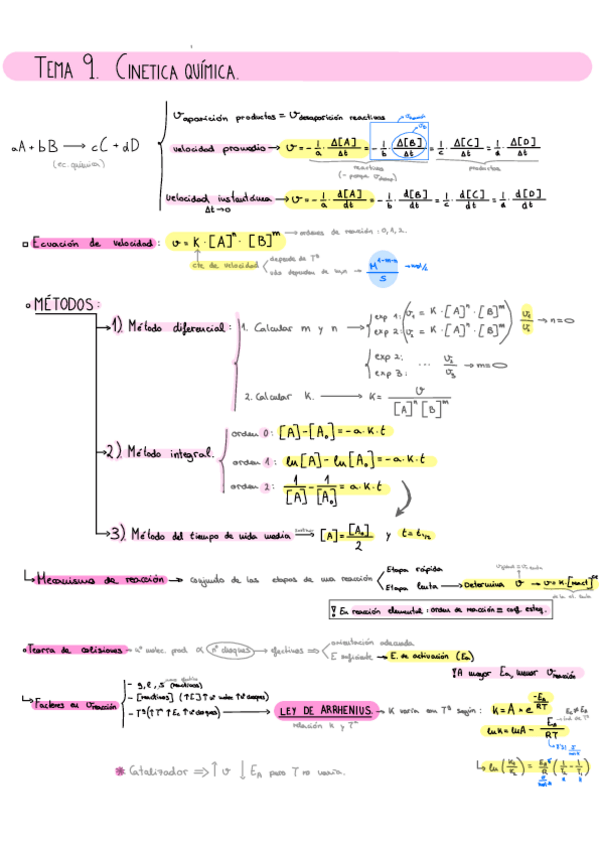 TEMA 9. CINETICA QUÍMICA.
aA + bB → cC + dD
(ec. química)
v aparición productos = v desaparición reactivos
velocidad promedio → v = -1/a · Δ[A]/Δt = -1/b · Δ[B]/Δt = 1/c · Δ[C]/Δt = 1/d · Δ[D]/Δt
reactivos
productos
velocidad instantánea → v = -1/a · d[A]/dt = -1/b · d[B]/dt = 1/c · d[C]/dt = 1/d · d[D]/dt
Δt→0
Ecuación de velocidad: v = K · [A]^n · [B]^m → ordenes de reacción: 0, 1, 2.
cte de velocidad
depende de Tª
MÉTODOS:
1) Método diferencial: 1. Calcular m y n →
exp 1: (v₁ = K · [A]^n · [B]^m)
exp 2: (v₂ = K · [A]^n · [B]^m) v₁/v₂ → n=0
exp 2:
exp 3: ... v₂/v₃ → m=0
2. Calcular K. → K = v/[A]^n [B]^m
2) Método integral.
orden 0: [A]-[A₀] = -a·K·t
orden 1: ln[A] - ln[A₀] = -a·K·t
orden 2: 1/[A] - 1/[A₀] = a·K·t
3) Método del tiempo de vida media → [A] = [A₀]/2 y t = t₁/₂
Mecanismo de reacción → conjunto de las etapas de una reacción
Etapa rápida
Etapa lenta → Determina v → v = K·[react]
! En reacción elemental: orden de reacción = coef. esteq.
Teoría de colisiones → nº molec. prod. α (nº choques) → efectivos ⇒
orientación adecuada
E suficiente → E. de activación (Ea)
! A mayor Ea, menor v reacción
Factores en v reacción
- g, l, s (reactivos)
- [reactivos] (↑[ ] ↑ nº choques)
- Tª (↑Tª ↑Ec ↑nº choques) → LEY DE ARRHENIUS. → K varía con Tª según: k = A · e^(-EA/RT)
relación K y Tª
lnK = lnA - EA/RT
ln (K₂/K₁) = EA/R (1/T₁ - 1/T₂)
* Catalizador ⇒ ↑ v ↓ EA pero T no varía.